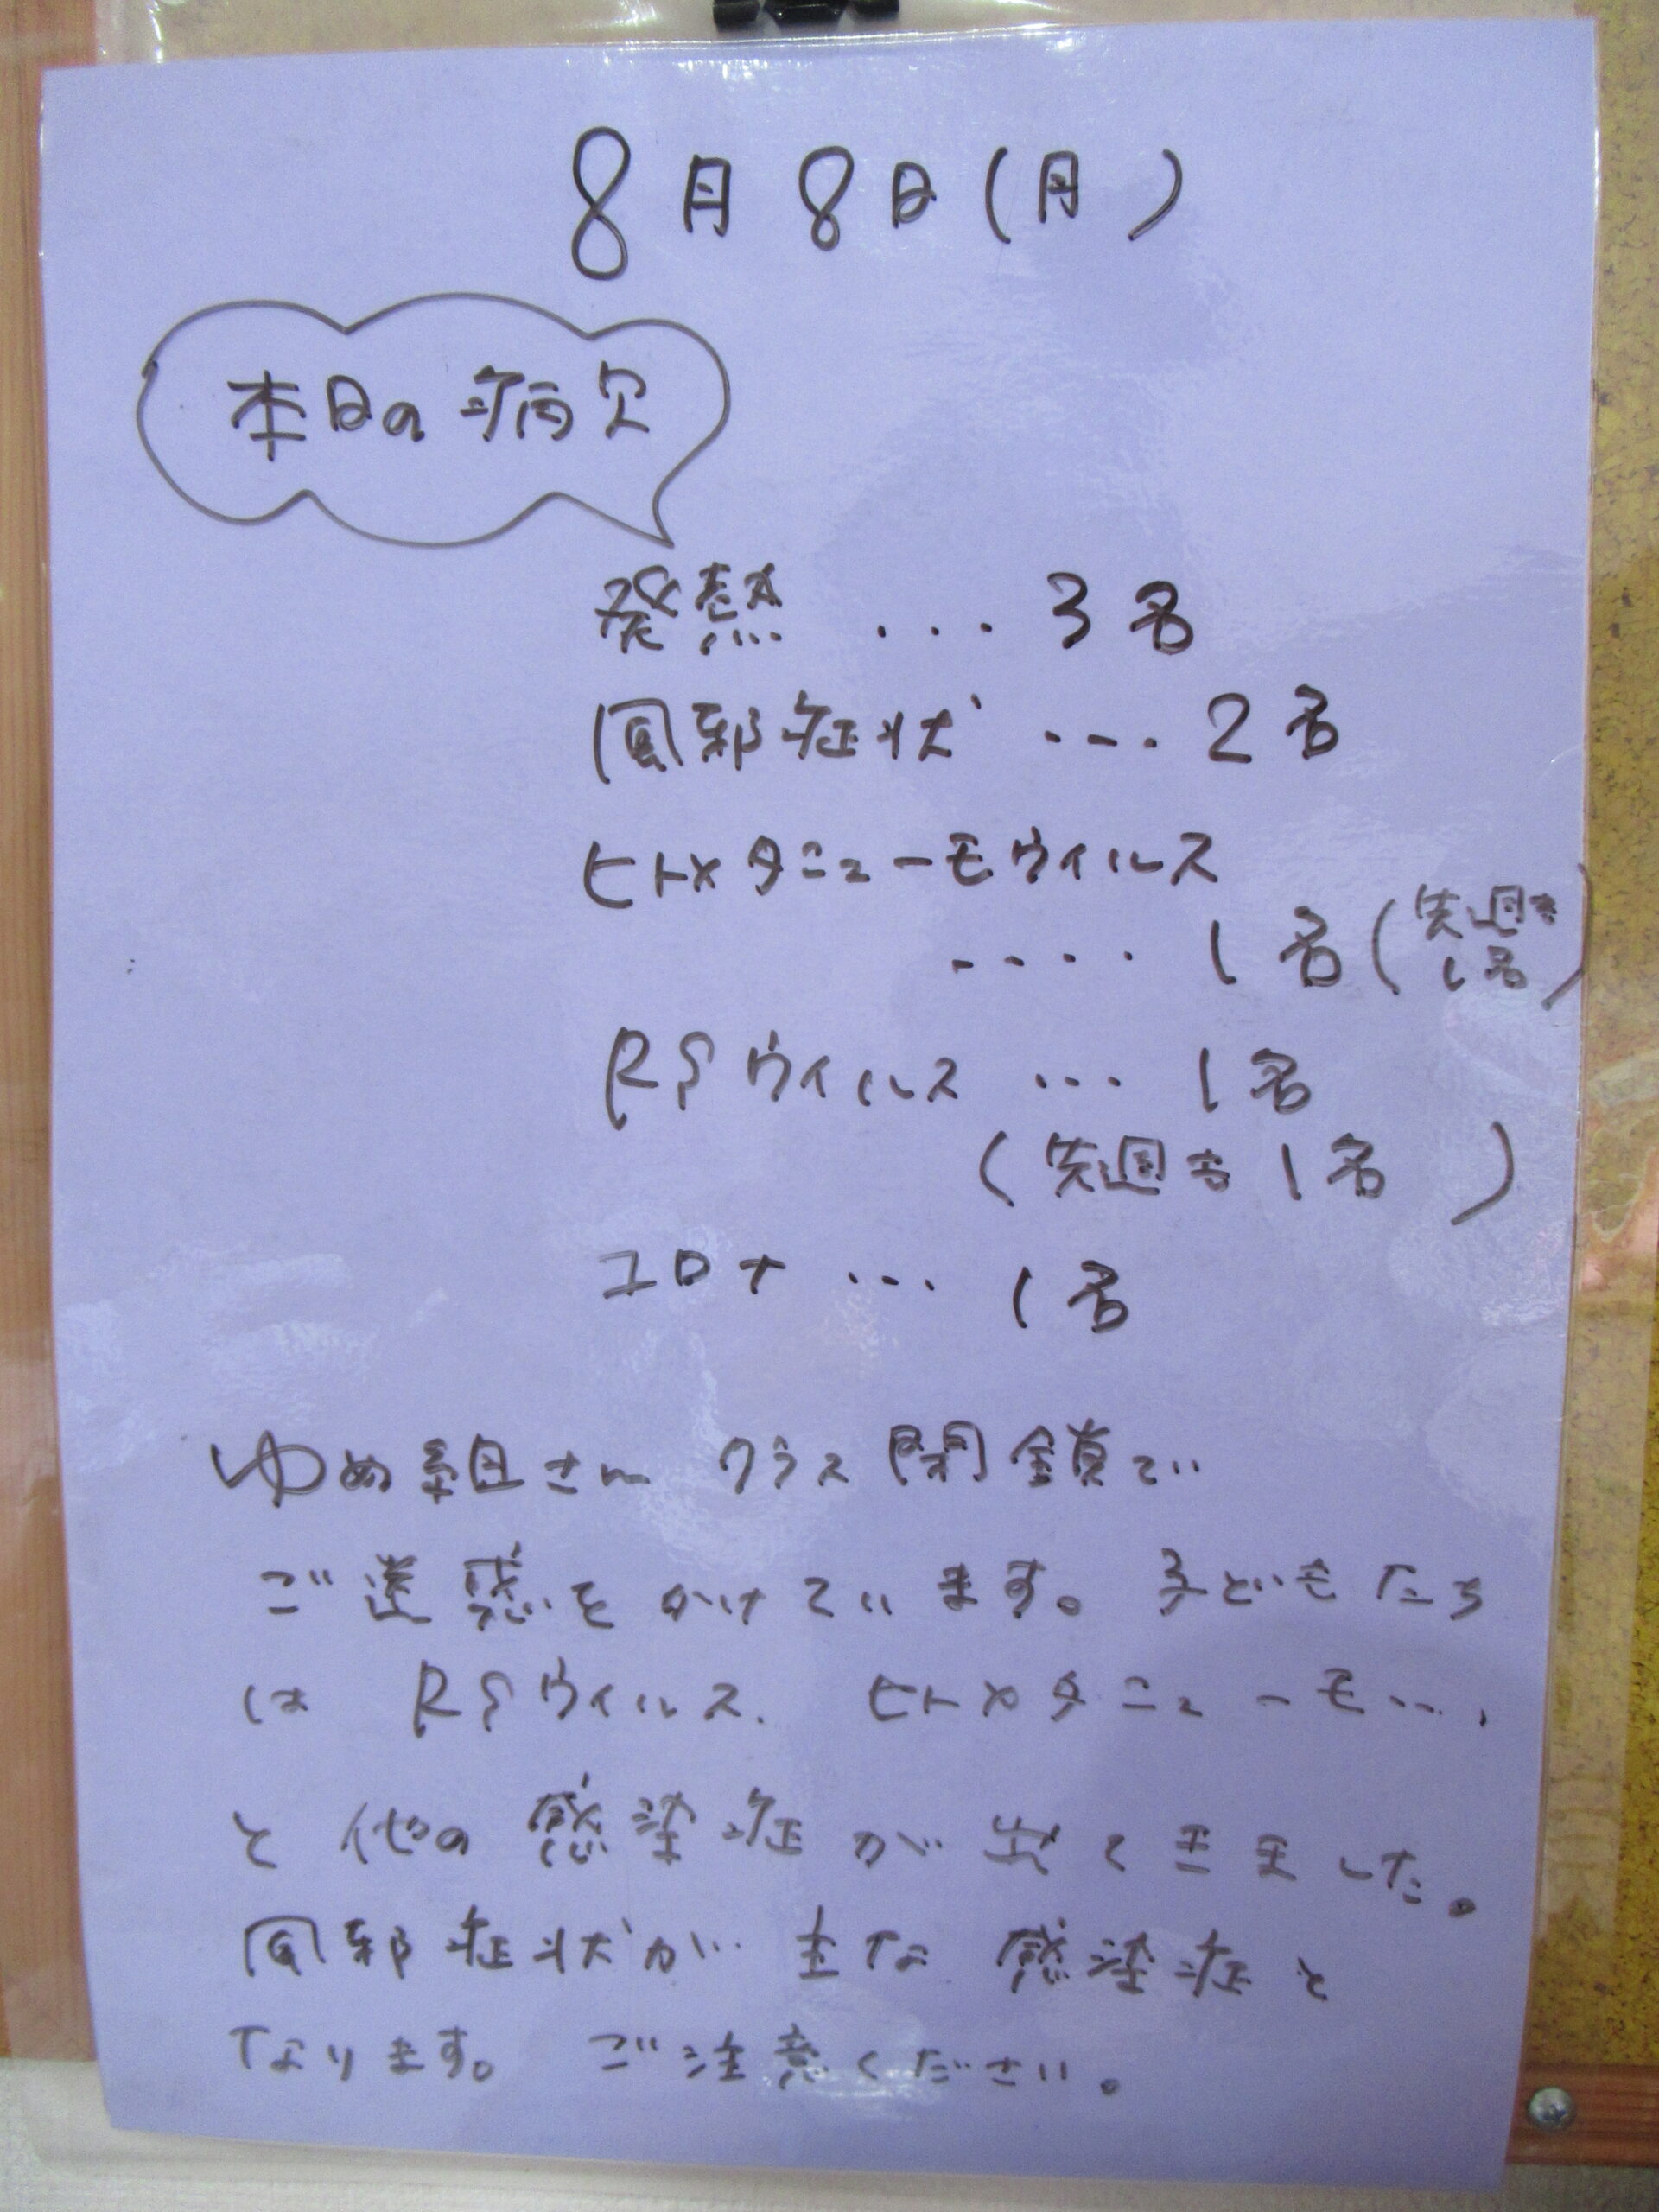 8月8日(月)
本日の病欠
発熱 ... 3名
風邪症状 ... 2名
ヒトメタニューモウイルス
.... 1名(先週も
1名)
RSウイルス ... 1名
(先週も1名 )
コロナ ... 1名
ゆめ組さん クラス閉鎖で
ご迷惑をかけています。子どもたち
は RSウイルス、 ヒトメタニューモ…、
と他の感染症が出てきました。
風邪症状が 主な 感染症と
なります。 ご注意ください。